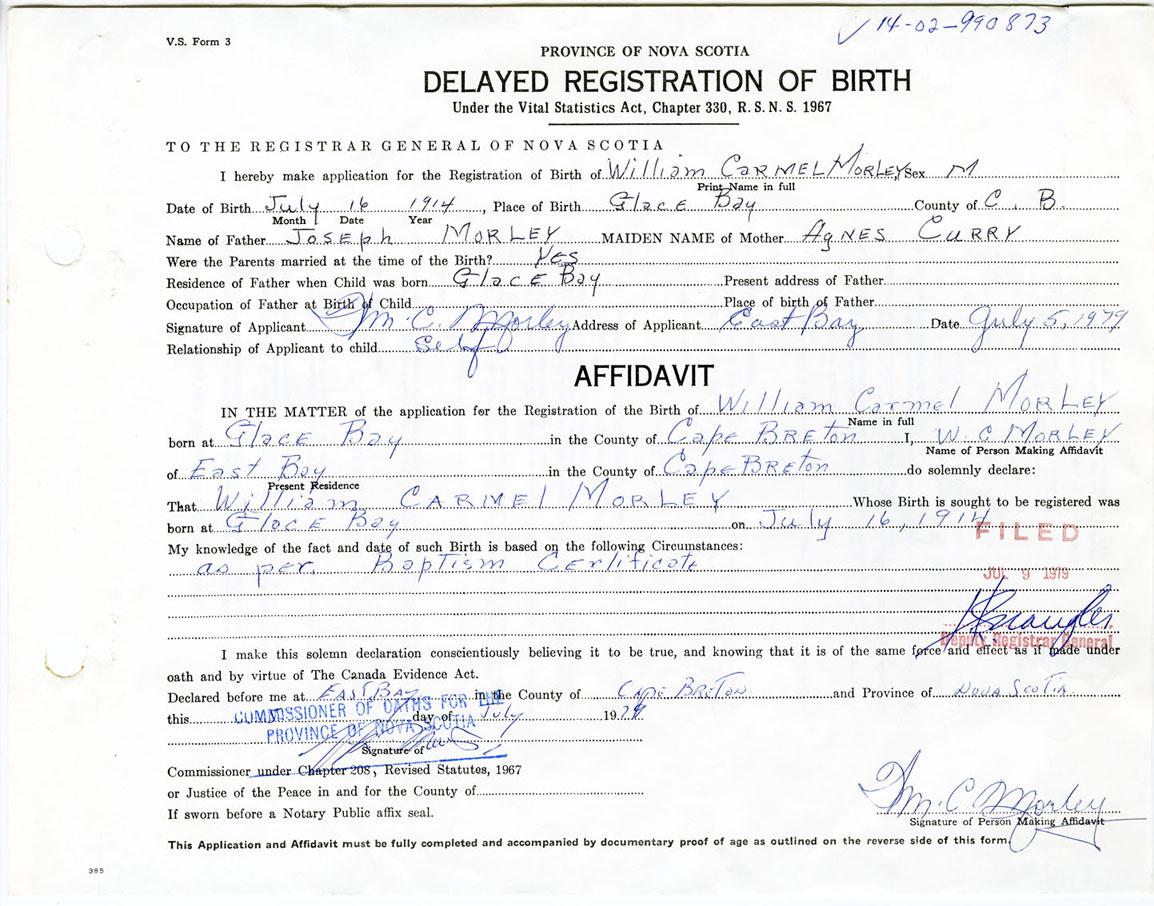 14-02-990873
V.S. Form 3
PROVINCE OF NOVA SCOTIA
DELAYED REGISTRATION OF BIRTH
Under the Vital Statistics Act, Chapter 330, R.S.N.S. 1967
TO THE REGISTRAR GENERAL OF NOVA SCOTIA
I hereby make application for the Registration of Birth of William CARMEL MORLEY Sex M
Print Name in full
Date of Birth July 16 1914, Place of Birth Glace Bay County of C. B.
Month Date Year
Name of Father Joseph MORLEY MAIDEN NAME of Mother AgNES CURRY
Were the Parents married at the time of the Birth? Yes
Residence of Father when Child was born Glace Bay Present address of Father
Occupation of Father at Birth of Child Place of birth of Father
Signature of Applicant Wm. C. Morley Address of Applicant East Bay Date July 5, 1979
Relationship of Applicant to child Self
AFFIDAVIT
IN THE MATTER of the application for the Registration of the Birth of William Carmel MORLEY
Name in full
born at Glace Bay in the County of Cape BRETON I, W. C MORLEY
Name of Person Making Affidavit
of East Bay in the County of Cape BRETON do solemnly declare:
Present Residence
That William CARMEL MORLEY Whose Birth is sought to be registered was
born at Glace Bay on July 16, 1914
FILED
My knowledge of the fact and date of such Birth is based on the following Circumstances:
as per. Baptism Certificate
JUL 9 1979
Deputy Registrar General
I make this solemn declaration conscientiously believing it to be true, and knowing that it is of the same force and effect as if made under
oath and by virtue of The Canada Evidence Act.
Declared before me at EAST BAY in the County of CAPE BRETON and Province of NOVA SCOTIA
COMMISSIONER OF OATHS FOR THE
this day of July 1979
PROVINCE OF NOVA SCOTIA
Signature of
Commissioner under Chapter 208, Revised Statutes, 1967
or Justice of the Peace in and for the County of
If sworn before a Notary Public affix seal.
Wm. C. Morley
Signature of Person Making Affidavit
This Application and Affidavit must be fully completed and accompanied by documentary proof of age as outlined on the reverse side of this form.
385